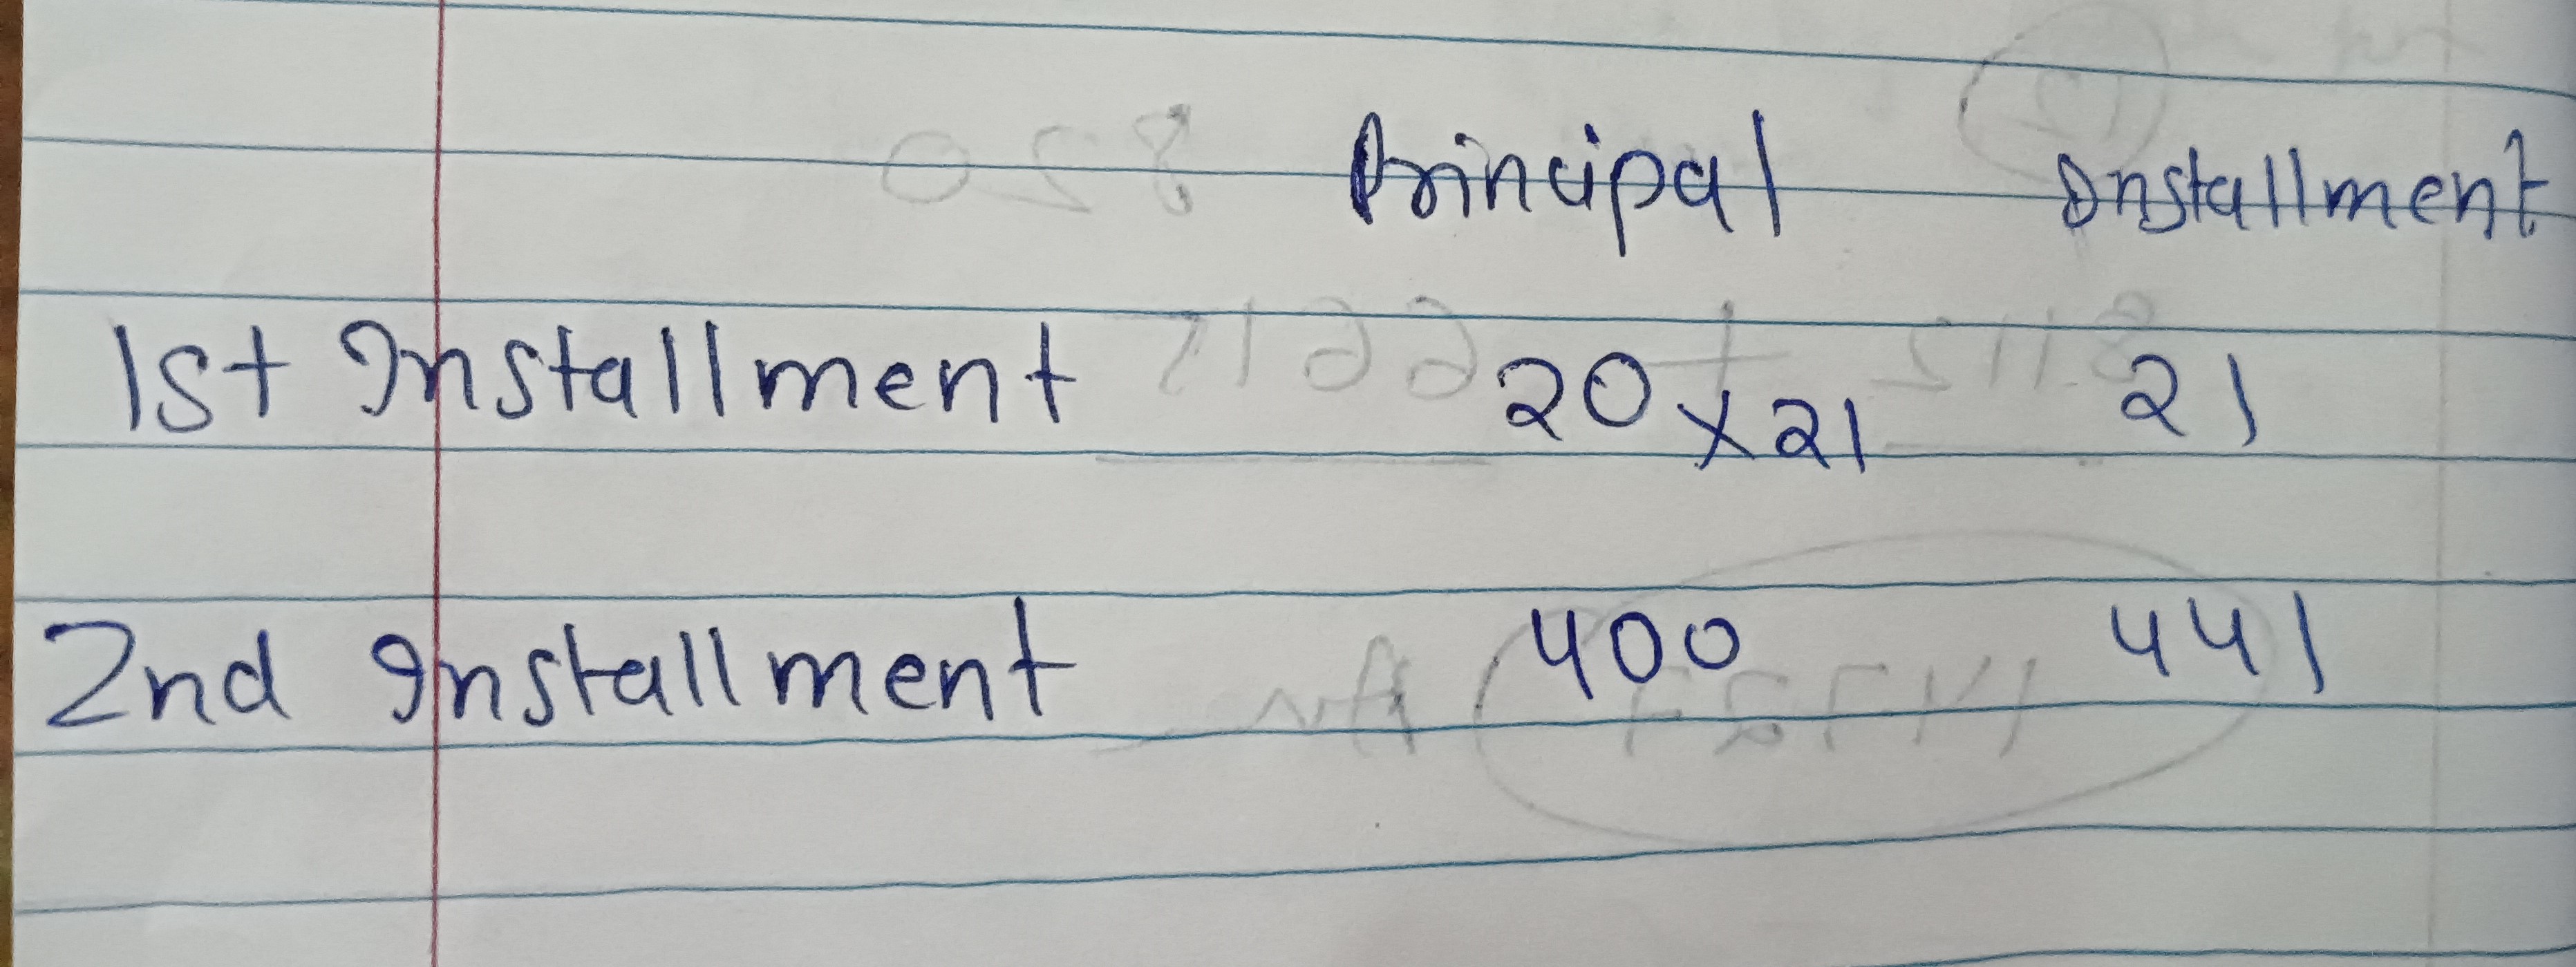 Principal Installment
1st Installment 20 x 21 21
2nd Installment 400 441